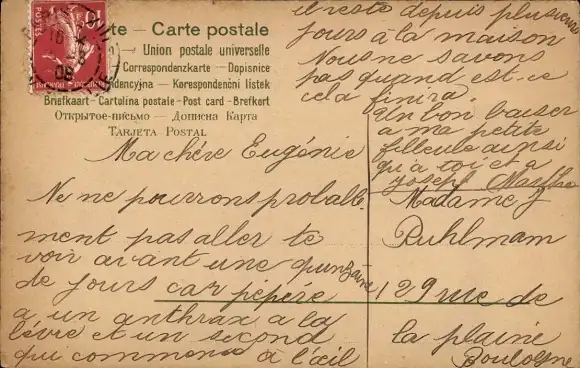 Carte postale
Union postale universelle
Correspondenzkarte - Dopisnice
Korespondenční listek
Briefkaart - Cartolina postale - Post card - Brefkort
Открытое-письмо - Дописна Карта
Tarjeta Postal
POSTES
Ma chére Eugénie
Ne ne pourrons probable
ment pas aller te
voir avant une quinzaine
de jours car pépére
a un anthrax a la
lévre et un second
qui commence a l'œil
il reste depuis plusieurs
jours á la maison
Nous ne savons
pas quand est-ce
cela finira
Un bon baiser
a ma petite
filleule ainsi
qu'a toi et a
Joseph Marthe
Madame J
Ruhlmam
129 rue de
la plaine
Boulogne